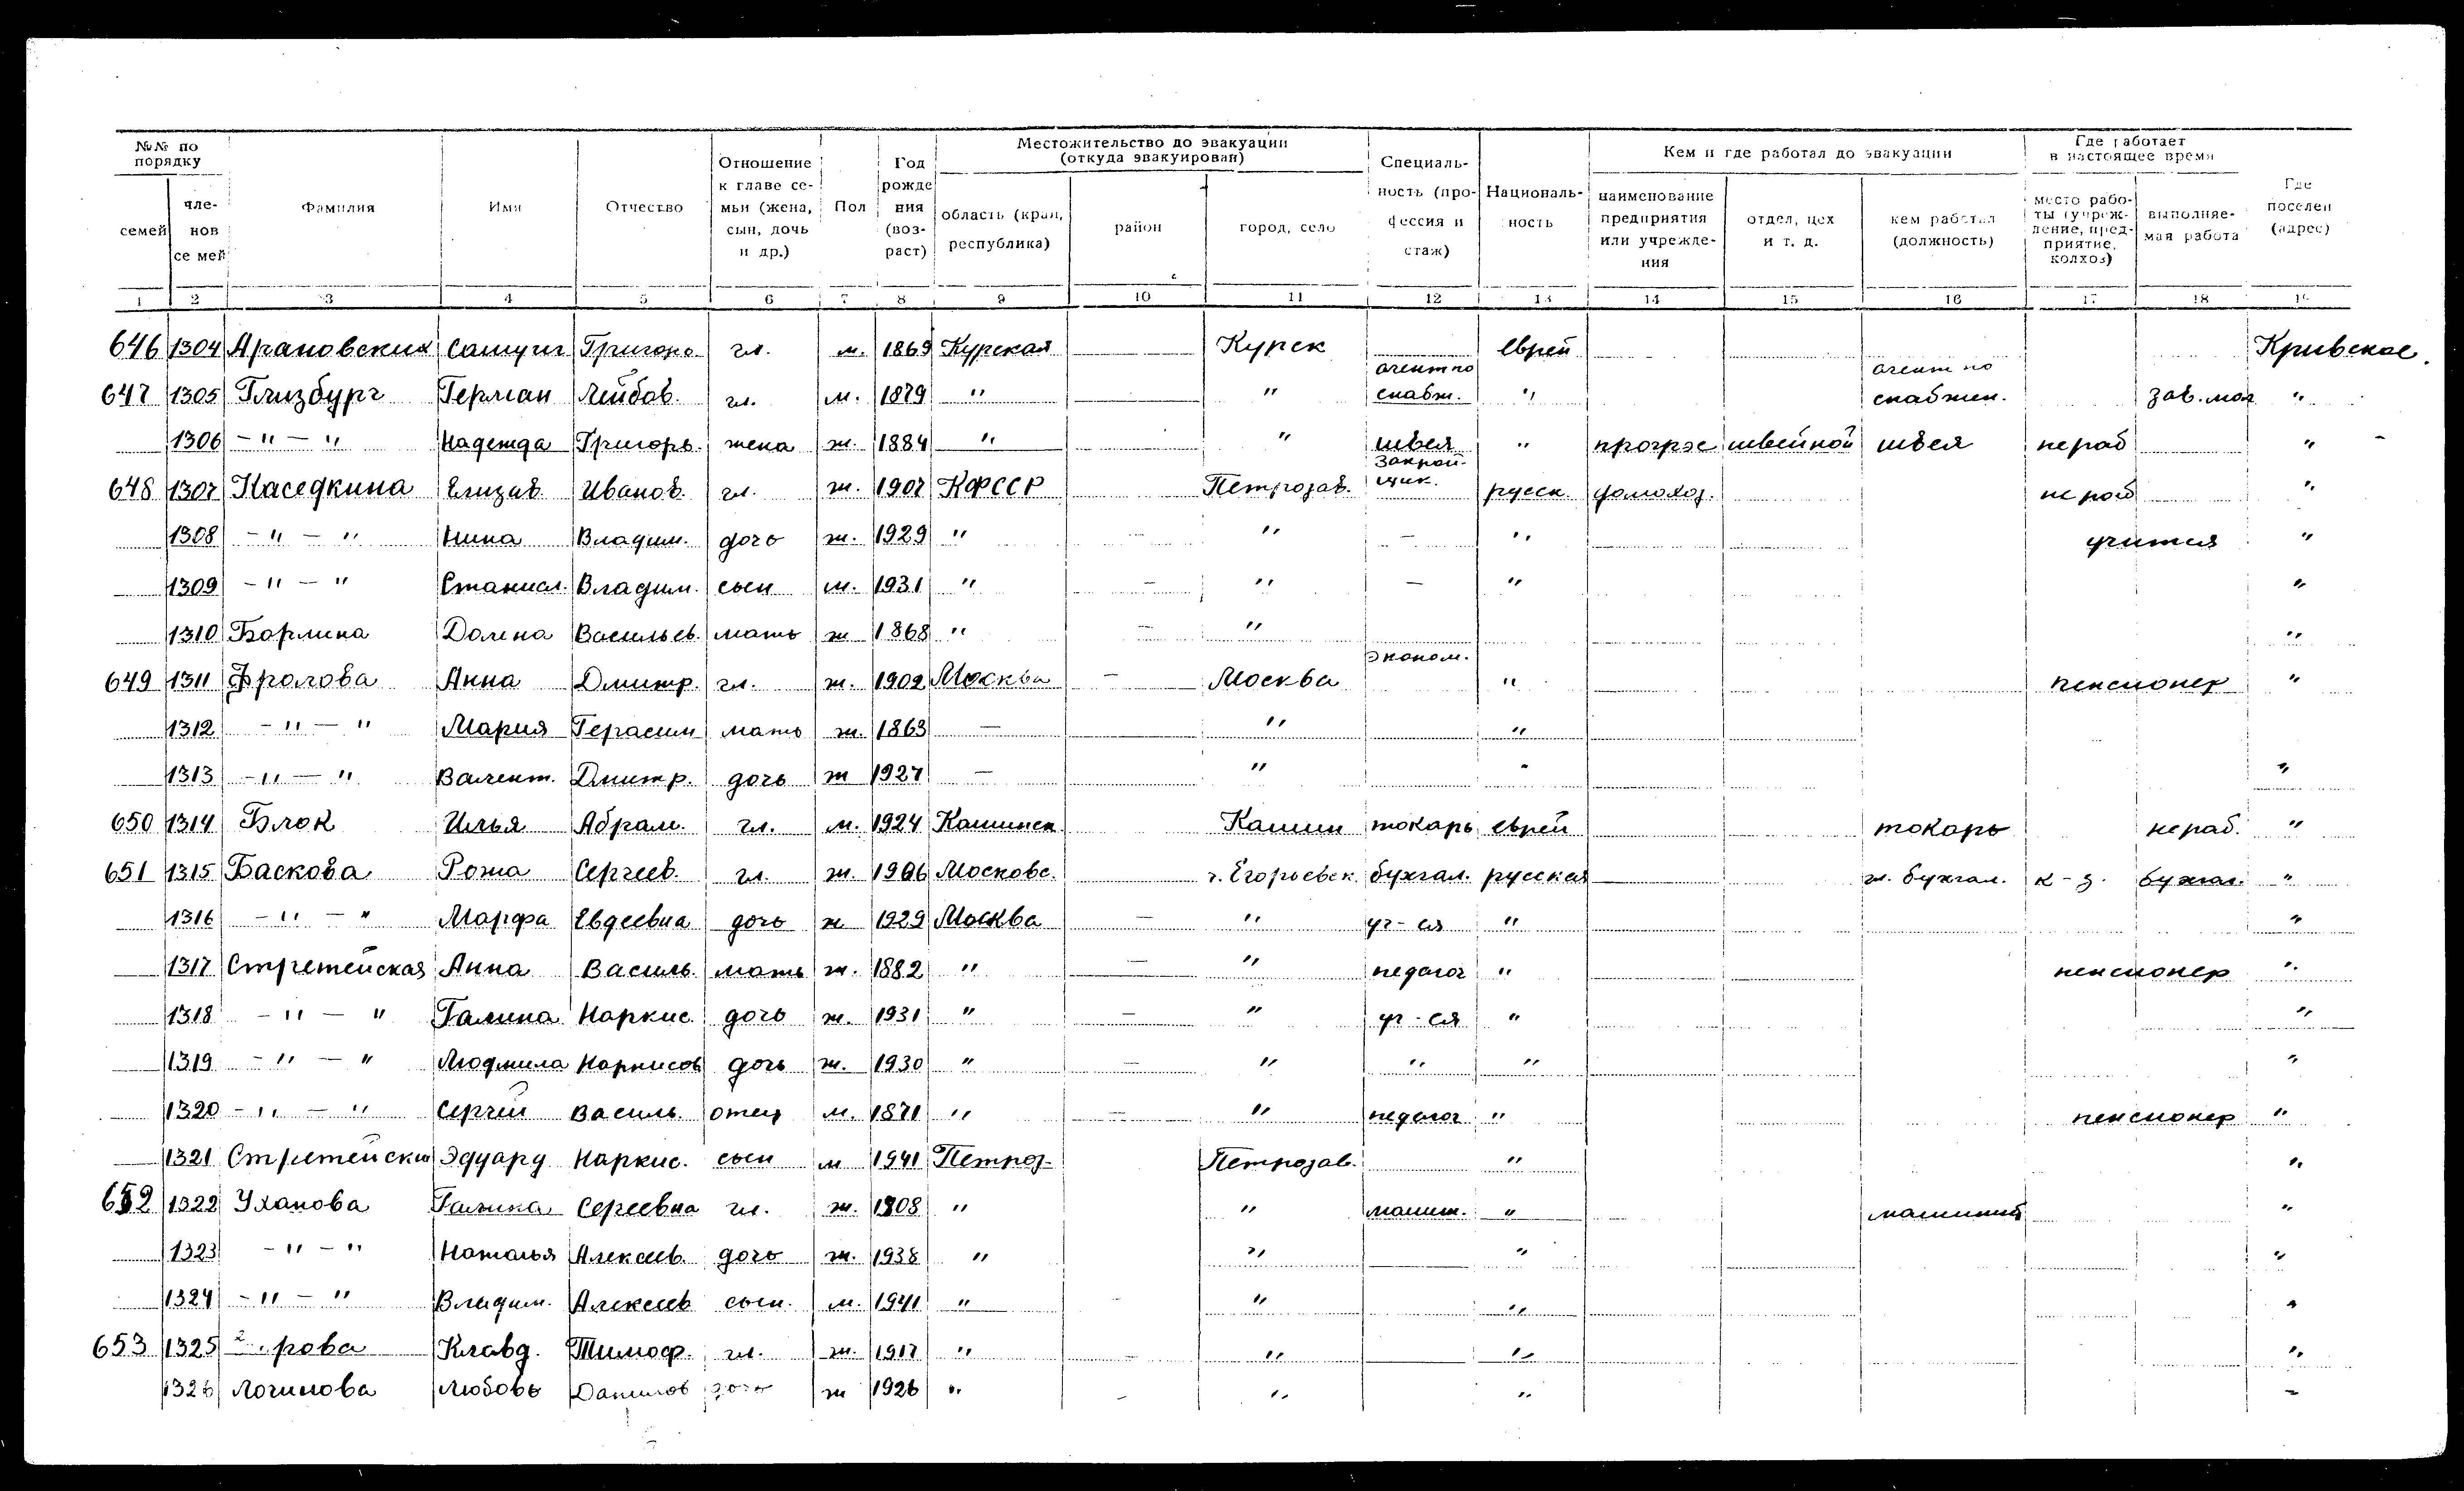 №№ по порядку
семей
членов се мей
Фамилия
Имя
Отчество
Отношение к главе семьи (жена, сын, дочь и др.)
Пол
Год рождения (возраст)
Местожительство до эвакуации (откуда эвакуирован)
область (край, республика)
район
город, село
Специальность (профессия и стаж)
Национальность
Кем и где работал до эвакуации
наименование предприятия или учреждения
отдел, цех и т. д.
кем работал (должность)
Где работает в настоящее время
место работы (учреждение, предприятие, колхоз)
выполняемая работа
Где поселен (адрес)
1 2 3 4 5 6 7 8 9 10 11 12 13 14 15 16 17 18 19
646 1304 Арановских Самуил Григорь. гл. м. 1869 Курская Курск еврей Кривское.
647 1305 Гинзбург Герман Лейбов. гл. м. 1879 " " агент по снабж. " агент по снабжен. зав. мол "
1306 - " - " Надежда Григорь. жена ж. 1884 " " швея " прогрэс швейной швея нераб "
648 1307 Каседкина Елизав. Иванов. гл. ж. 1907 КФССР Петрозав. закройщик. русск. домохоз. не раб "
1308 - " - " Нина Владим. дочь ж. 1929 " - " - " учится "
1309 - " - " Станисл. Владим. сын м. 1931 " - " - " "
1310 Борлина Васильев. мать ж 1868 " - " "
649 1311 Фролова Анна Дмитр. гл. ж. 1902 Москва - Москва эконом. " пенсионер "
1312 - " - " Мария Герасим мать ж. 1863 - " "
1313 - " - " Валент. Дмитр. дочь ж 1927 - " " "
650 1314 Блок Илья Абрам. гл. м. 1924 Кашинск. Кашин токарь еврей токарь нераб. "
651 1315 Баскова Рома Сергеев. гл. ж. 1906 Московс. г. Егорьевск. бухгал. русская гл. бухгал. к-з. бухгал. "
1316 - " - " Марфа Евдеевна дочь ж 1929 Москва - " уч-ся " "
1317 Стретейская Анна Василь. мать ж. 1882 " - " педагог " пенсионер "
1318 - " - " Галина Наркис. дочь ж. 1931 " - " уч-ся " "
1319 - " - " Людмила Наркисов дочь ж. 1930 " - " " " "
1320 - " - " Сергей Василь. отец м. 1871 " - " педагог " пенсионер "
1321 Стретейски Эдуард Наркис. сын м 1941 Петроз- Петрозав. " "
652 1322 Уханова Галина Сергеевна гл. ж. 1908 " " машин. " "
1323 - " - " Наталья Алексеев. дочь ж. 1938 " " " "
1324 - " - " Владим. Алексеев сын. м. 1941 " - " " "
653 1325 рова Клавд. Тимоф. гл. ж. 1917 " - " " "
1326 Логинова Любовь Данилов дочь ж 1926 " - " " "